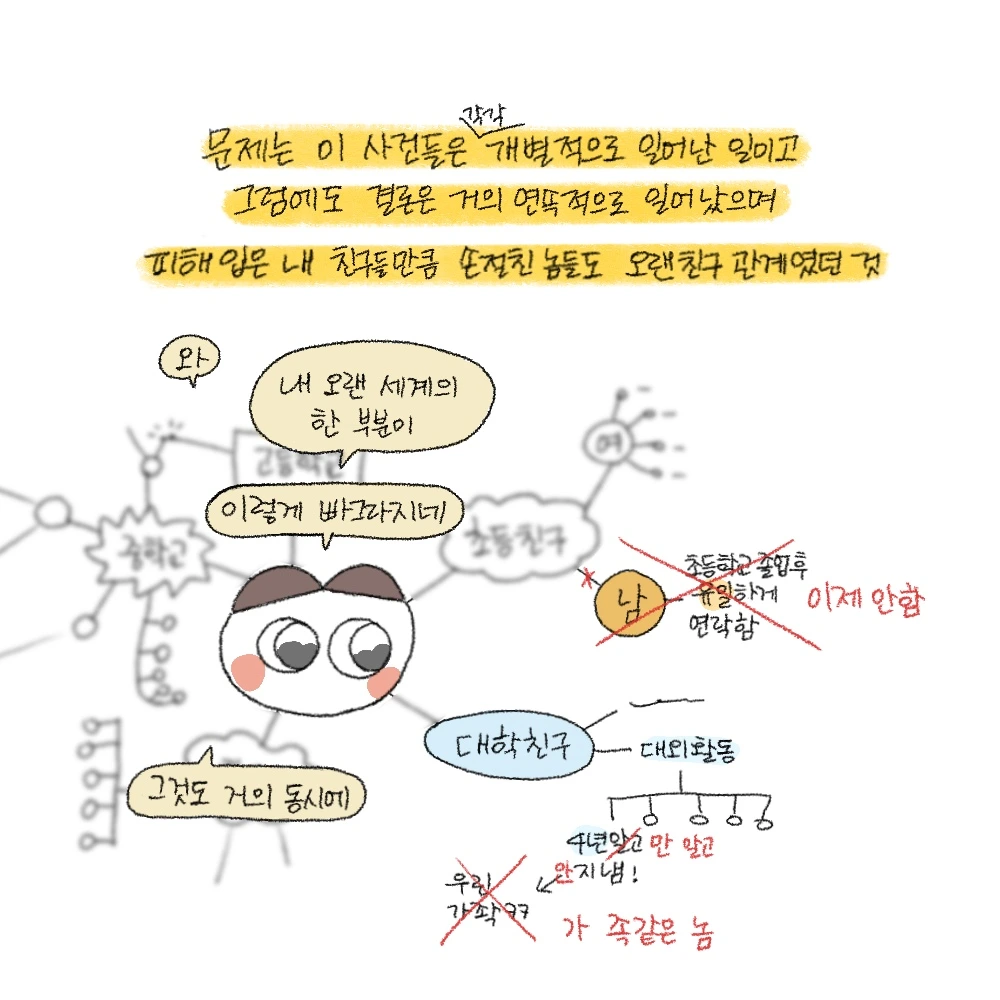 각각
문제는 이 사건들은 개별적으로 일어난 일이고
그럼에도 결론은 거의 연뜩적으로 일어났으며
피해 입은 내 친구들만큼 손절친 놈들도 오랜친구 관계였던 것
와
내 오랜 세계의
한 부분이
고등학교
이렇게 빠그라지네
여
중학교
초등친구
남
초등학교 졸업 후
유일하게
연락함
이제 안함
대학친구
대외활동
그것도 거의 동시에
4년알고 만 알고
안지냄!
우린
가좍ㅋㅋ
가 족같은 놈